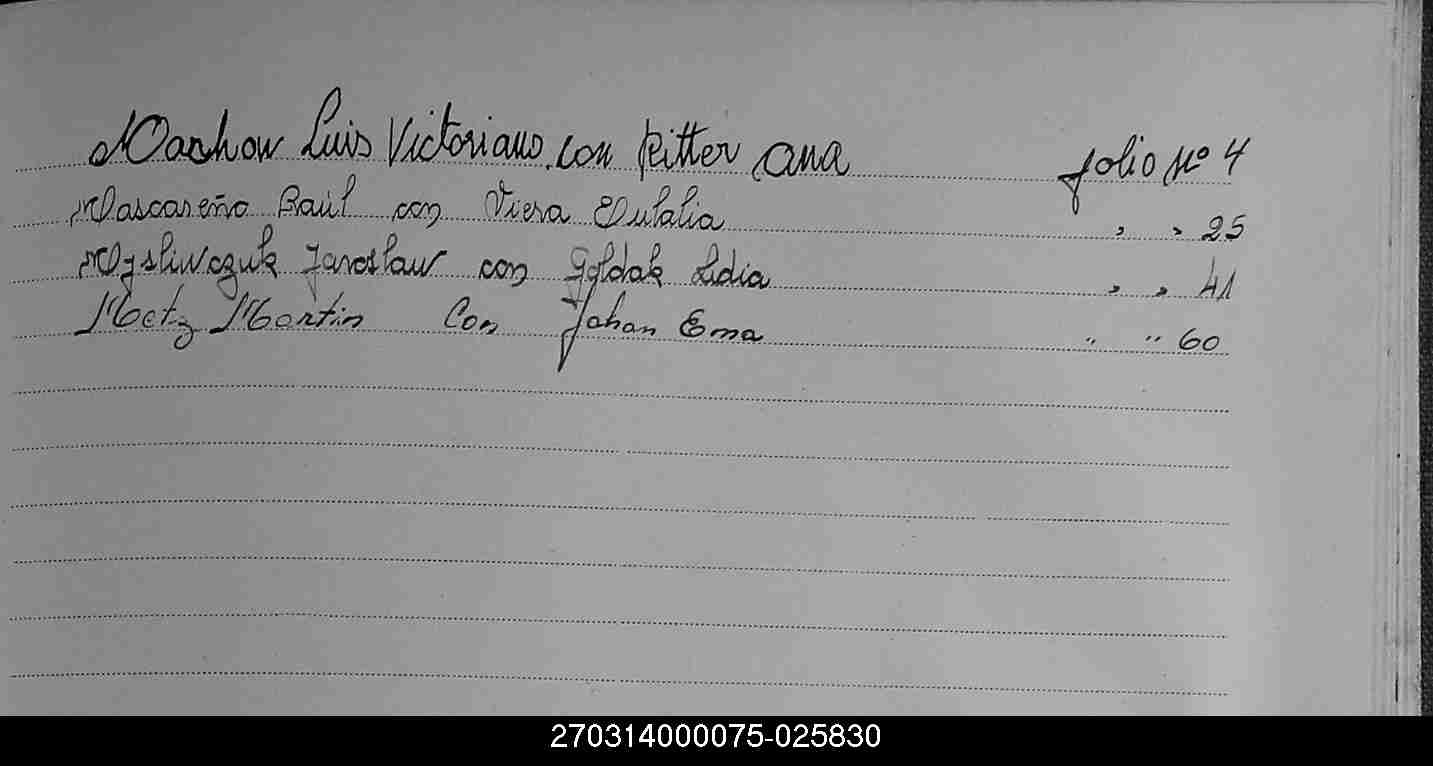 Machow Luis Victoriano con Ritter Ana folio Nº 4
Mascareño Raúl con Viera Eulalia " " 25
Mysliwczuk Jaroslaw con Gyldak Lidia " " 41
Metz Martin Con Jahan Ema " " 60
270314000075-025830